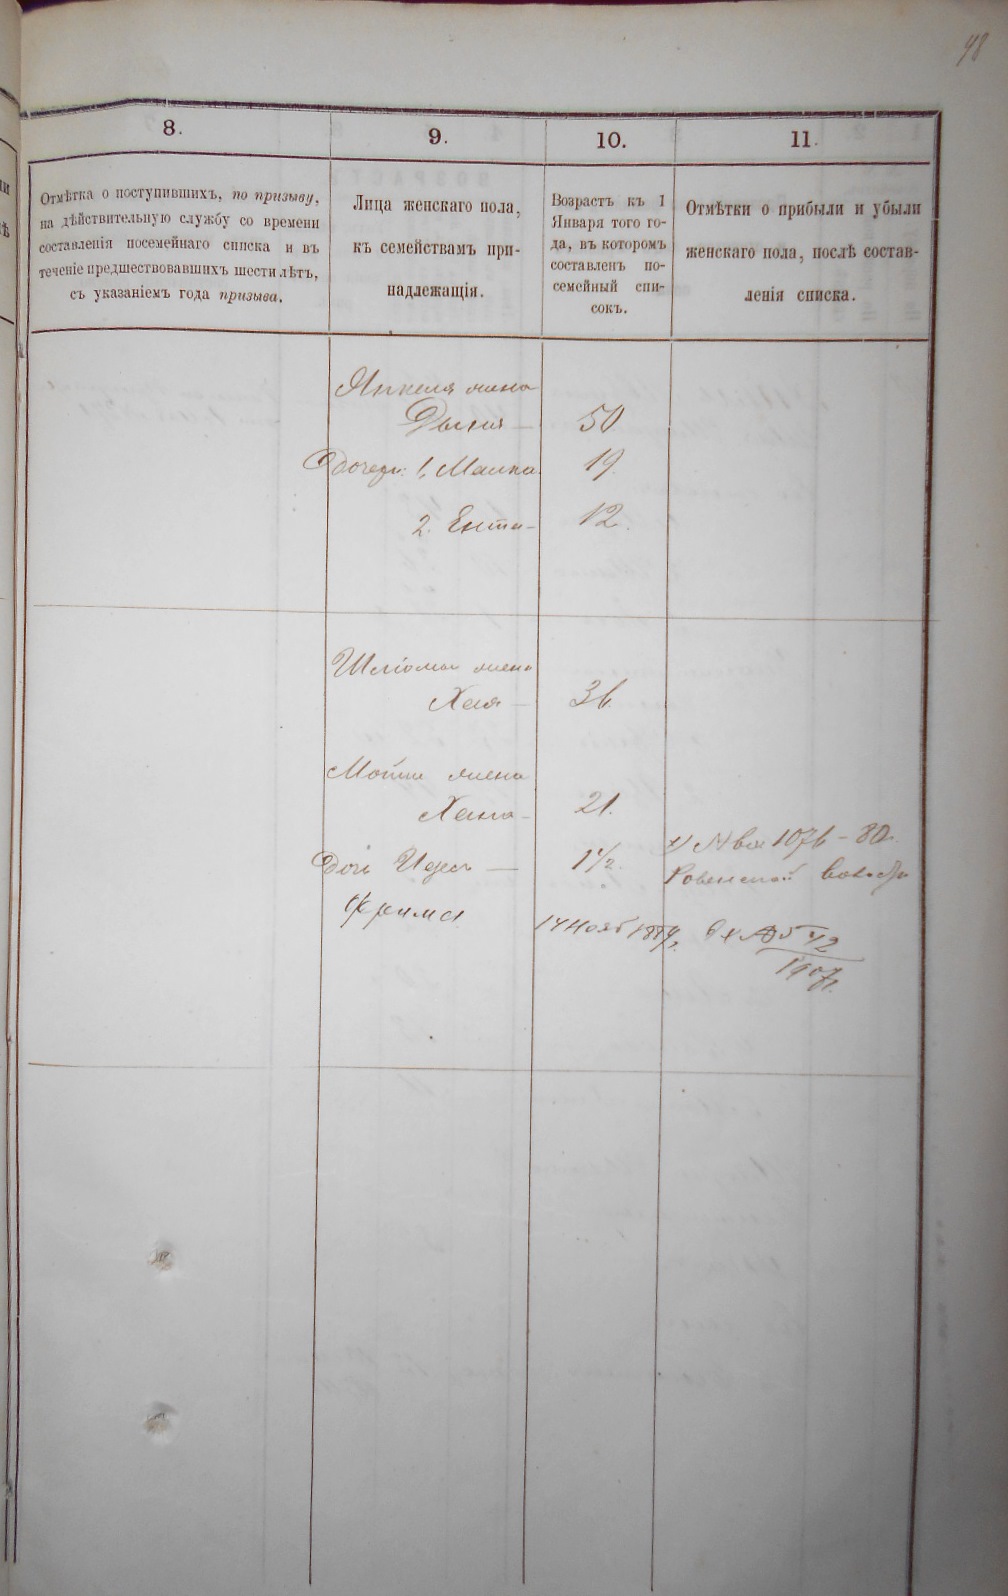 48
8.
9.
10.
11.
Отмѣтка о поступившихъ, по призыву,
на дѣйствительную службу со времени
составленія посемейнаго списка и въ
теченіе предшествовавшихъ шести лѣтъ,
съ указаніемъ года призыва.
Лица женскаго пола,
къ семействамъ при-
надлежащія.
Возрастъ къ 1
Января того го-
да, въ которомъ
составленъ по-
семейный спи-
сокъ.
Отмѣтки о прибыли и убыли
женскаго пола, послѣ состав-
ленія списка.
Янкеля жена
50
Дочери: 1, Малка
19.
2. Ента
12.
Шліома жена
Хая
36
Мойши жена
Хана
21.
Дочь
1 1/2.
1076 - 80
Ровенской
Фрима
14 Нояб 1889 г.
542
1907 г.